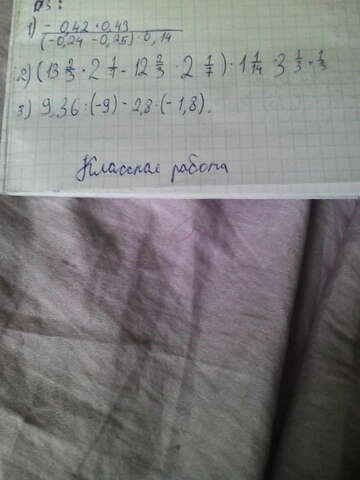 1) - 0,42 · 0,49 / (-0,24 - 0,25) · 0,14
2) (13 2/3 · 2 1/7 - 12 2/3 · 2 1/7) · 1 1/14 · 3 1/3 · 1/3
3) 9,36 : (-9) - 2,8 · (- 1,8).
Классная работа